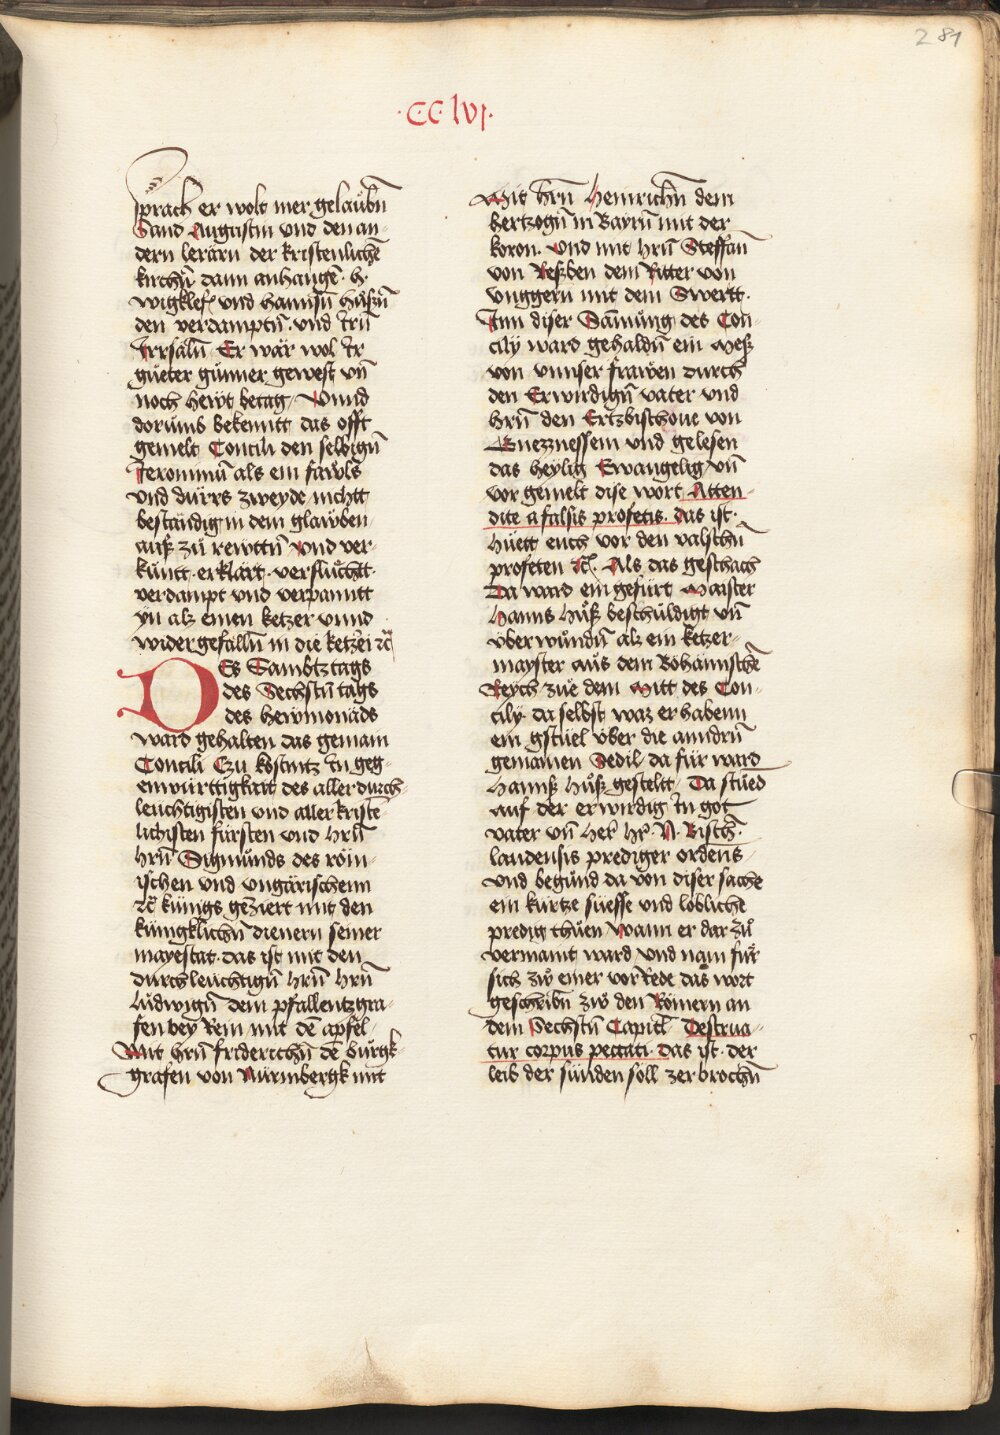 281
·CC lvj·
sprach er wolt mer gelaubn̄
Sand Augustin vnd den an-
dern lerärn der kristenlichē
kirchn̄ dann anhangē· h·
wigklef· vnd hannsn̄ husn̄
den verdamptn̄· vnd irn̄
Irrsaln̄ Er wär wol Ir
gueter günner gewest vn̄
noch hewt betag Vnnd
dorumb bekennt das offt
gemelt Concili den selbign̄
Jeronimū als ein fawls
vnd dürrs zweyde nichtt
beständig in dem glawben
auß zu rewttn̄ Vnd ver-
kunt· erklärt· verfluchtt·
verdampt vnd verpanntt
yn alz einen ketzer vnnd
widergefalln̄ in die ketzei ꝛc̄
Des Sambtztags
des Sechstn̄ tags
des hewmonäds
ward gehalten das gemain
Concili Czu kostnitz in geg-
enwürttigkait des aller durch-
leuchtigisten vnd aller kriste-
lichisten fürsten vnd hrn̄
hrn̄ Sigmunds des röm-
ischen vnd vngärischenn
ꝛc̄ künigs geziert mit den
künigklichn̄ dienern seiner
mayestat· das ist mit den
durchleuchtign̄ hrn̄ hrn̄
Ludwign̄ dem pfallentzgra-
fen bey Rein mit dē apfel-
Mit hrn̄ friderichn̄ dē burgk-
grafen von Nurmbergk mit
Mit hrn̄ Heinrichn̄ dem
hertzogn̄ in Bayrn̄ mit der
koron· Vnd mit hrn̄ Steffan̄
von Reßben dem Ritter von
vnggern mit dem Swertt·
Inn diser Sām̄ung des Con-
cily ward gehaldn̄ ein Meß
von vnnser frawen durch
den Erwirdign̄ vater vnd
hrn̄ den Ertzbischoue von
Gnezznessem vnd gelesen
das heylig Ewangelig vn̄
vor gemelt dise wort Atten-
dite a falsis profetis· das ist·
Huett euch vor den valschn̄
profeten ꝛc̄· Als das geschach
Da ward ein gefurt Maister
Hanns Huß beschuldigt vn̄
vberwundn̄ alz ein ketzer-
mayster aus dem Böhämischē
Reych zue dem Mitt des Con-
cily· da selbst waz erhabenn
ein gstuel vber die anndrn̄
gemainen Sedil· da für ward
Hannß Huß gestellt· Da stued
auf der erwirdig in got
vater vn̄ her hr· N· Bisch·
laudensis prediger ordens
vnd begund da von diser sache
ein kurtze suesse vnd loblichē
predig thuen Wann er dar zu
vermant ward vnd nam für
sich zw einer vor Rede das wort
geschribn̄ zw den Römern an
dem Sechstn̄ Capitl Destrua-
tur corpus peccati· das ist· der
leib der sünden soll zerbrochn̄